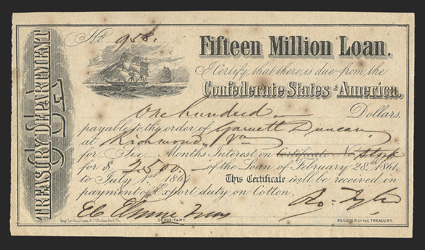 No 908.
Fifteen Million Loan.
I Certify, that there is due from the
Confederate States of America,
One hundred Dollars.
payable to the order of Garnett Duncan
at Richmond Va
for Six Months Interest on Certificate Stock
for $ of the Loan of February 28th 1861,
to July 1st 186 This Certificate will be received in
payment of Export duty on Cotton.
TREASURY DEPARTMENT
CSA
E C Elmore Treas
Ro. Tyler
REGISTER OF THE TREASURY.